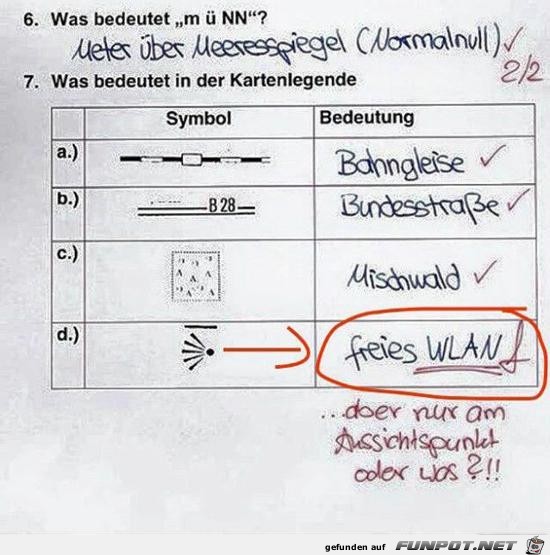 6. Was bedeutet „m ü NN“?
Meter über Meeresspiegel (Normalnull) ✓
2/2
7. Was bedeutet in der Kartenlegende
Symbol Bedeutung
a.) Bahngleise ✓
b.) B 28 Bundesstraße ✓
c.) Mischwald ✓
d.) freies WLAN f
...aber nur am
Aussichtspunkt
oder was?!!
gefunden auf FUNPOT.NET